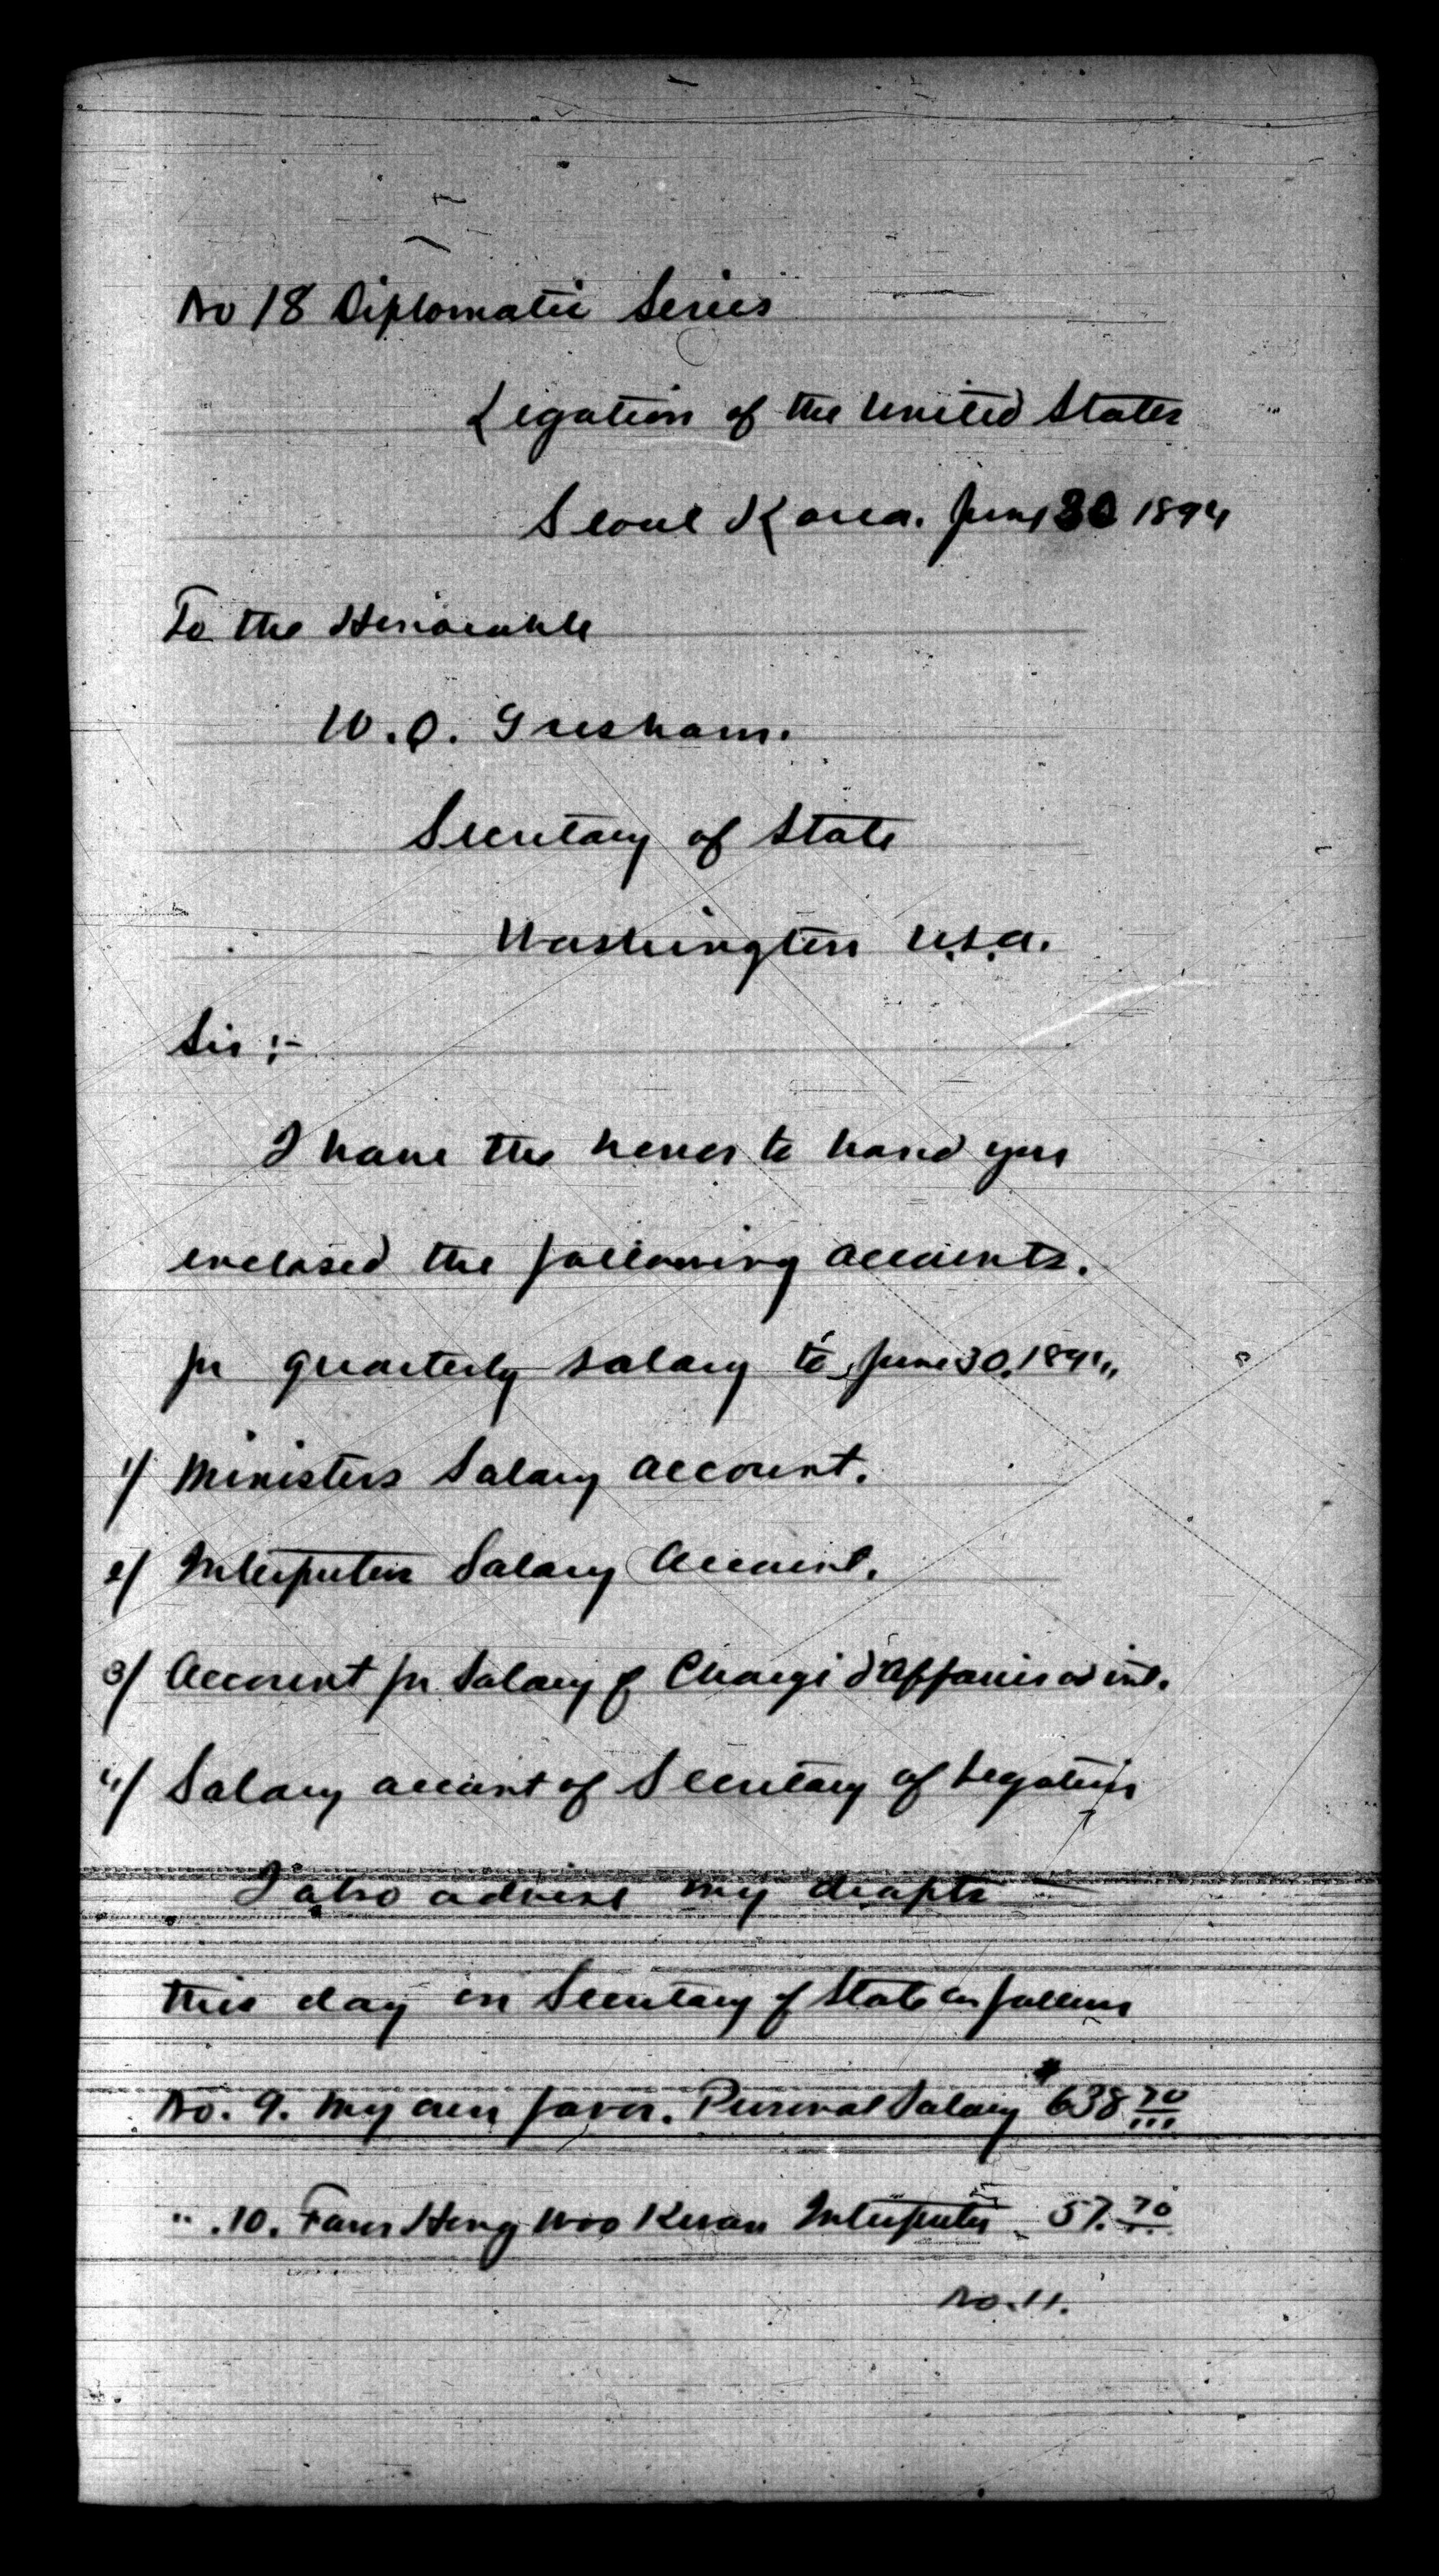 No 18 Diplomatic Series
Legation of the United States
Seoul Korea. June 30 1894
To the Honorable
W. Q. Gresham.
Secretary of State
Washington U.S.A.
Sir :-
I have the honor to hand you
enclosed the following accounts.
for quarterly salary to June 30. 1894,
1/ Ministers Salary Account.
2/ Interpreters Salary Account.
3/ Account for Salary of Chargé d'Affaires ad int.
4/ Salary account of Secretary of Legation
I also advise my drafts
this day on Secretary of State as follows
No. 9. My own favor. Personal Salary $638 70
" .10. Favor Hong Woo Kwan Interpreter 57. 70
No. 11.